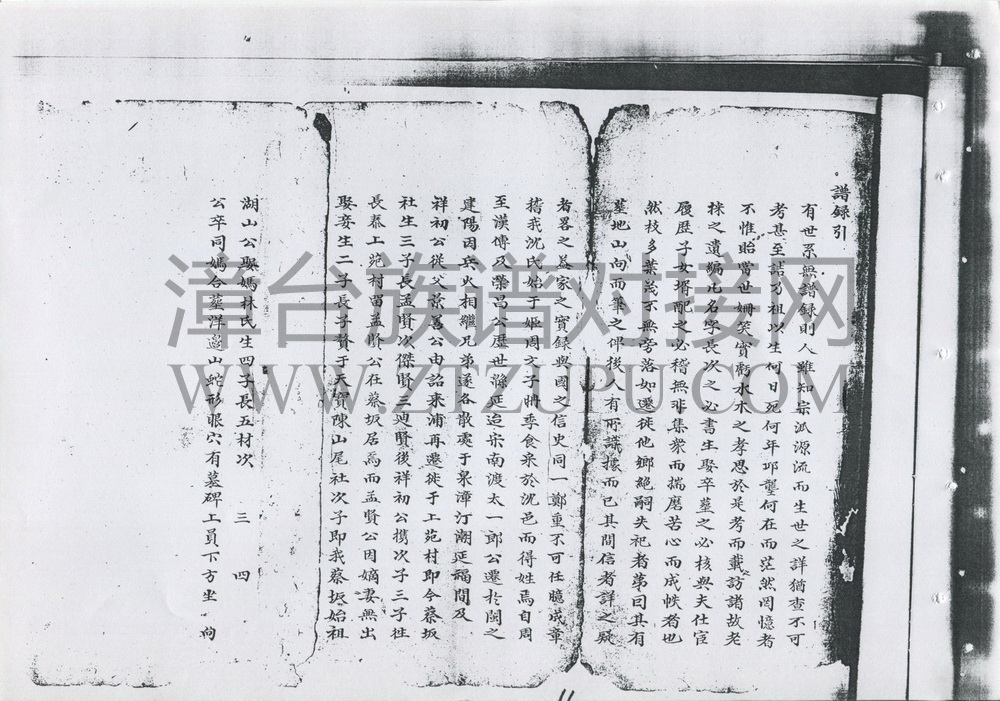 譜録引
有世系無譜録則人雖知宗派源流而生世之詳猶查不可
考甚至詰乃祖以生何日死何年邛壟何在而茫然罔憶者
不惟貽當世姍笑實虧水木之孝思於是考而載訪諸故老
採之遺編凡名字長次之必書生娶卒墓之必核與夫仕宦
履歷子女壻配之必稽無非集衆而揣磨苦心而成帙者也
然枝多葉茂不無旁落如遷徙他鄉絶嗣失祀者第曰其有
墓地山向而筆之俾後人有所議據而已其間信者詳之疑
者畧之益家之實録與國之信史同一鄭重不可任臆成章
稽我沈氏始于姬周文子冉季食采於沈邑而得姓焉自周
至漢傳及榮昌公歷世綿延迨宋南渡太一郎公遷於閩之
建陽因兵火相繼兄弟遂各散處于泉漳汀潮延福間及
祥初公從父景善公由詔來浦再遷徙于上苑村即今蔡坂
社生三子長孟賢次傑賢三廸賢後祥初公携次子三子徃
長泰上苑村留孟賢公在蔡坂居焉而孟賢公因嫡妻無出
娶妾生二子長子贅于天寶陳山尾社次子即我蔡坂始祖
湖山公娶媽林氏生四子長五材次 三 四
公卒同媽合墓洋邊山蛇形眼穴有墓碑工員下方坐 向
漳台族谱对接网
WWW.ZTZUPU.COM
11